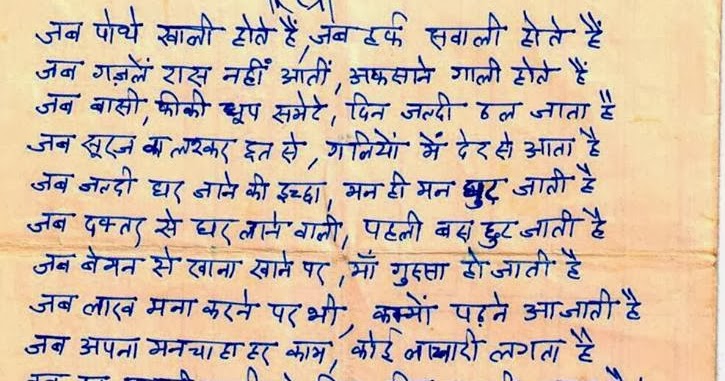 जब पोथे खाली होते हैं, जब हर्फ सवाली होते हैं
जब गज़लें रास नहीं आतीं, अफसाने गाली होते हैं
जब बासी, फीकी धूप समेटे, दिन जल्दी ढल जाता है
जब सूरज का लश्कर छत से, गलियों में देर से आता है
जब जल्दी घर जाने की इच्छा, मन ही मन घुट जाती है
जब दफ्तर से घर लाने वाली, पहली बस छुट जाती है
जब बेमन से खाना खाने पर, माँ गुस्सा हो जाती है
जब लाख मना करने पर भी, कम्मों पढ़ने आ जाती है
जब अपना मनचाहा हर काम, कोई लाचारी लगता है